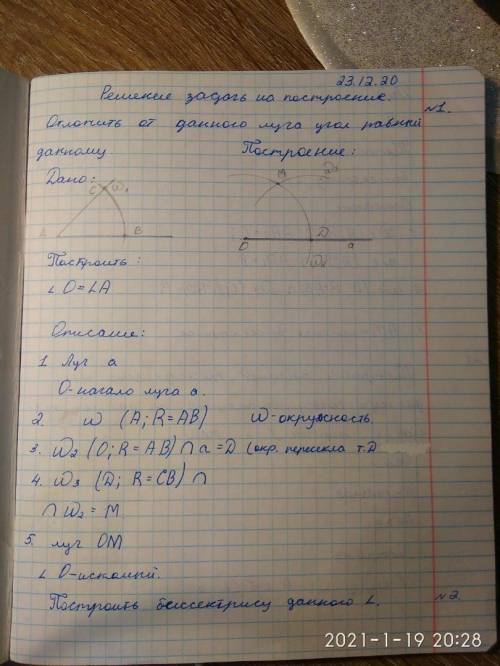 23.12.20
Решение задачь на построение.
№1.
Отложить от данного луча угол равный
данному
Построение:
Дано:
C ω₁
A B
M ω₃
O D a
ω₂
Построить:
∠O=∠A
Описание:
1. Луч а
О-начало луча а.
2. ω (A; R=AB) ω-окружность
3. ω₂ (O; R=AB) ∩ a = D (окр. пересекла т.D
4. ω₃ (D; R=CB) ∩
∩ ω₂ = M
5. луч OM
∠ O-искомый.
Построить биссектрису данного ∠. №2.
2021-1-19 20:28